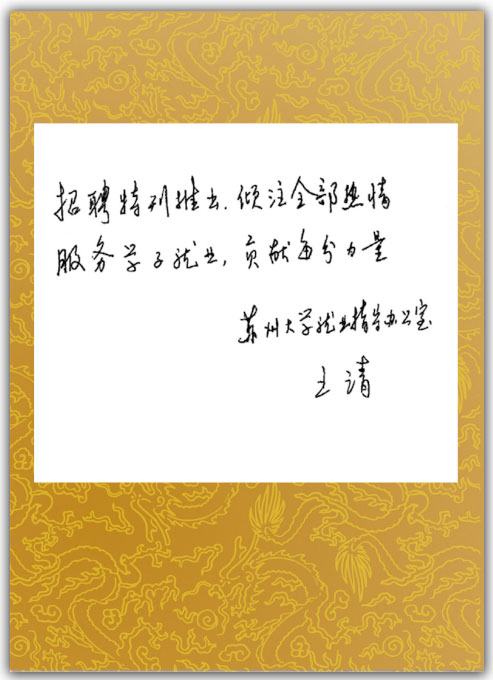 招聘特刊推出、倾注全部热情
服务学子就业,贡献每分力量
苏州大学就业指导办公室
王清